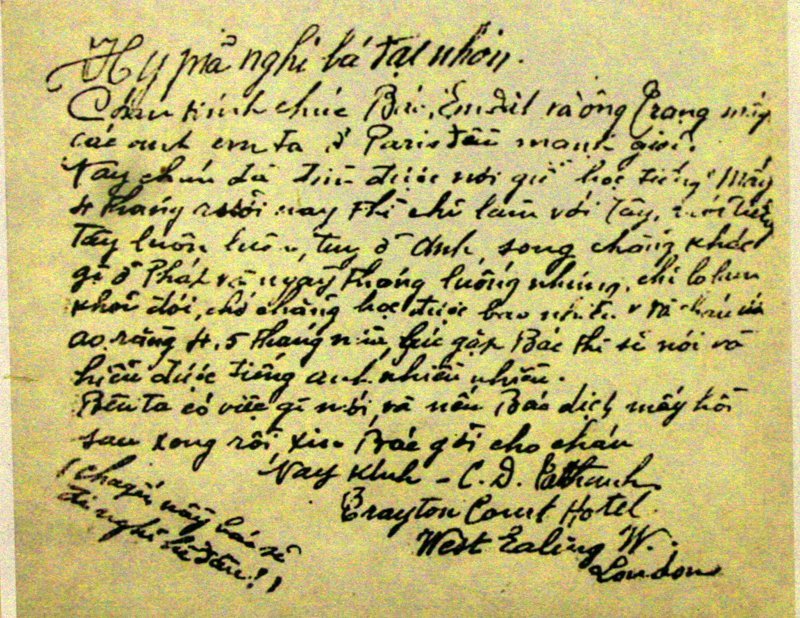 Hy mã nghi bá đại nhơn.
Cháu kính chúc Bác, Em dật và ông Trạng mấy
các anh em ta ở Paris đều mạnh giỏi.
Nay cháu đã tìm được nơi giể học tiếng. Mấy
4 tháng rưỡi nay thì chỉ làm với Tây, nói tiếng
Tây luôn luôn, tuy ở Anh song chẳng khác
gì ở Pháp và ngày tháng luống những, chỉ lo lun
khỏi đói, chớ chẳng học được bao nhiêu và cháu ước
ao rằng 4, 5 tháng nữa lúc gặp Bác thì sẽ nói và
hiểu được tiếng anh nhiều nhiều.
Bên ta có việc gì mới, và nếu Bác dịch mấy hồi
sau xong rồi xin Bác gởi cho cháu
Nay kính – C. D. Tấtthành
Drayton Court Hotel
West Ealing W.
London
(chuyến nầy bác sẽ
đi nghỉ hè đâu!)